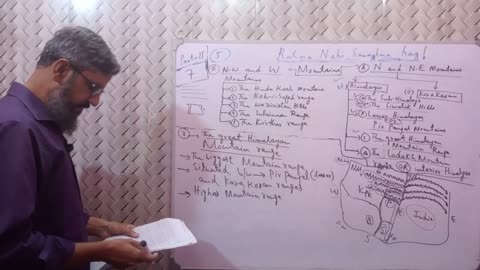 Ratna Nahi Samajhna hay!
5
7
B N.W and W Mountains
Mountains
1 The Hindu Kush Mountains
2 The Koh-i-Sofed range
3 The Waziristan Hills
4 The Sulaiman Range
5 The Kirthar Ranges
A N and N.E Mountains
(i) Himalayas
(ii) Karakoram
1 The Sub-Himalayas
The Siwalik Hills
2 Lesser Himalayas
Pir Panjal Mountains
3 The great Himalayan
Mountain Range
4 The Ladakh Mountain
Range OR interior Himalayas
3 The great Himalayan
Mountain range
→ The biggest Mountain range
→ Situated b/w → Pir Panjal (lesser)
and Karakoram ranges
→ Highest Mountain range
KPK
W
B
India
E
S